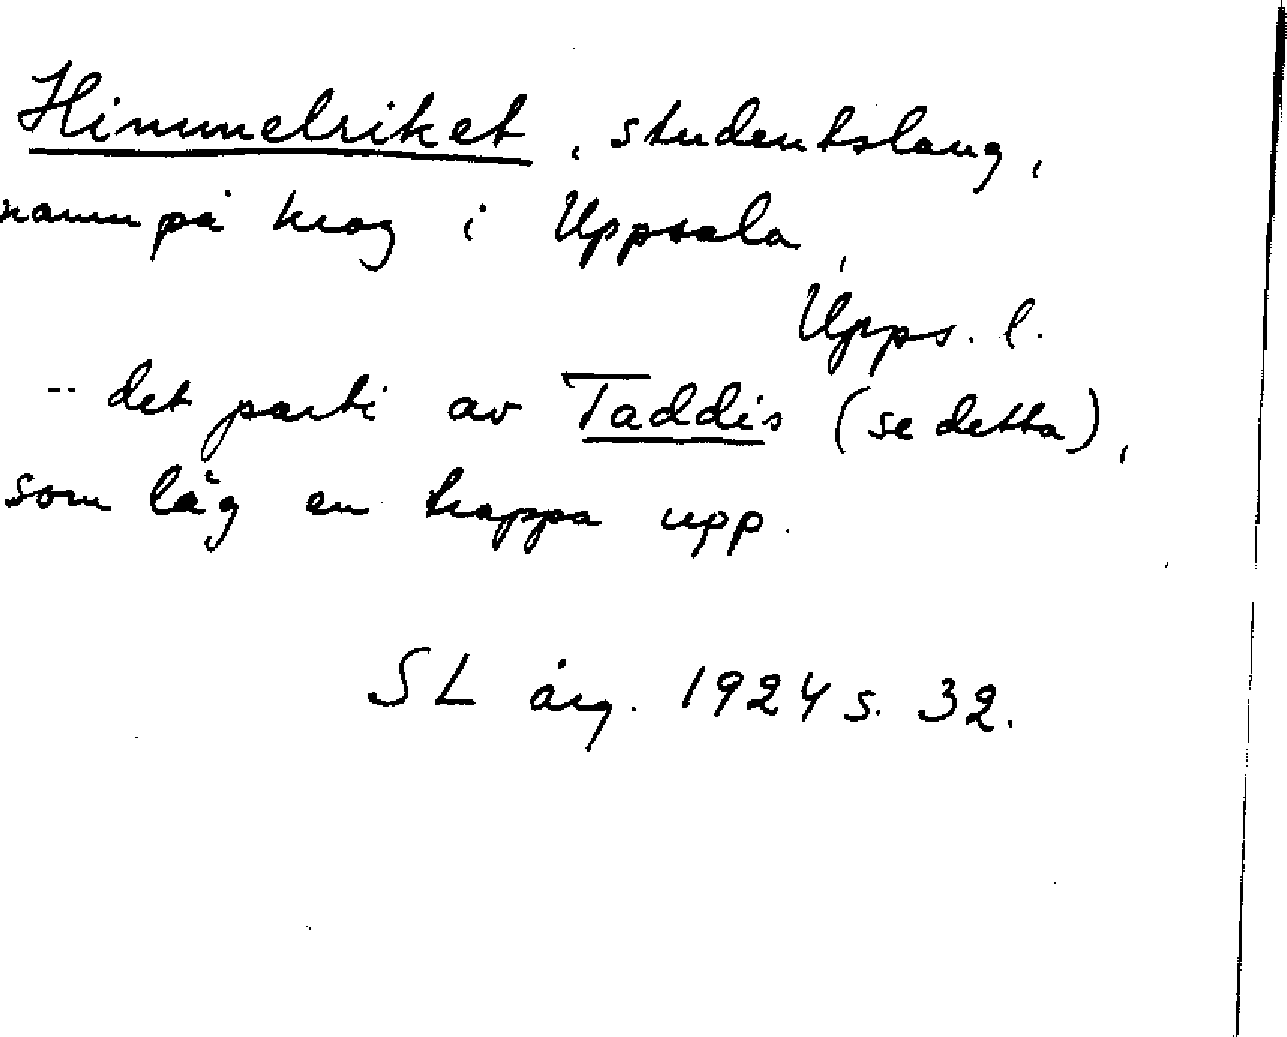 Himmelriket, studentslang,
namn på krog i Uppsala,
Upps. l.
-- det parti av Taddis (se detta),
som låg en trappa upp.
SL årg. 1924 s. 32.